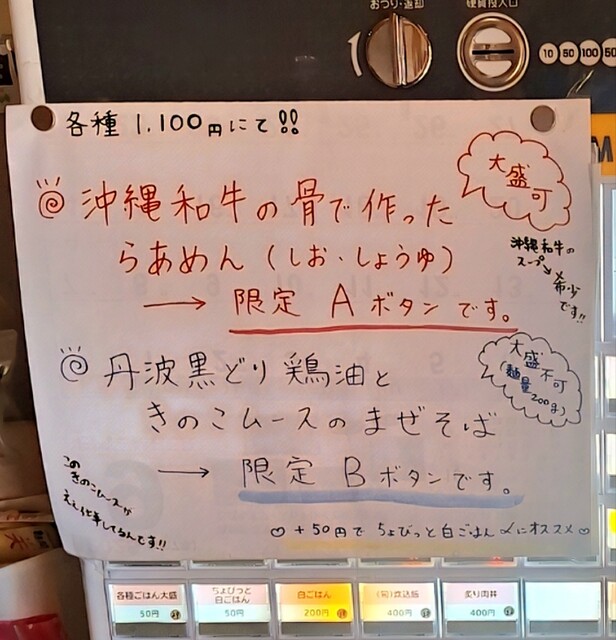 おつり・返却
硬貨投入口
10 50 100 50
各種 1,100円にて!!
大盛可
沖縄和牛の骨で作った
らあめん(しお・しょうゆ)
→ 限定 A ボタンです。
沖縄和牛の
スープ→希少
です!!
丹波黒どり鶏油と
きのこムースのまぜそば
→ 限定 B ボタンです。
大盛不可
(麺量200g)
この
きのこムースが
えぇ仕事してるんです!!
+50円で ちょびっと白ごはん 〆にオススメ
各種ごはん大盛
50円
ちょびっと
白ごはん
50円
白ごはん
200円
(旬)炊込飯
400円
炙り肉丼
400円